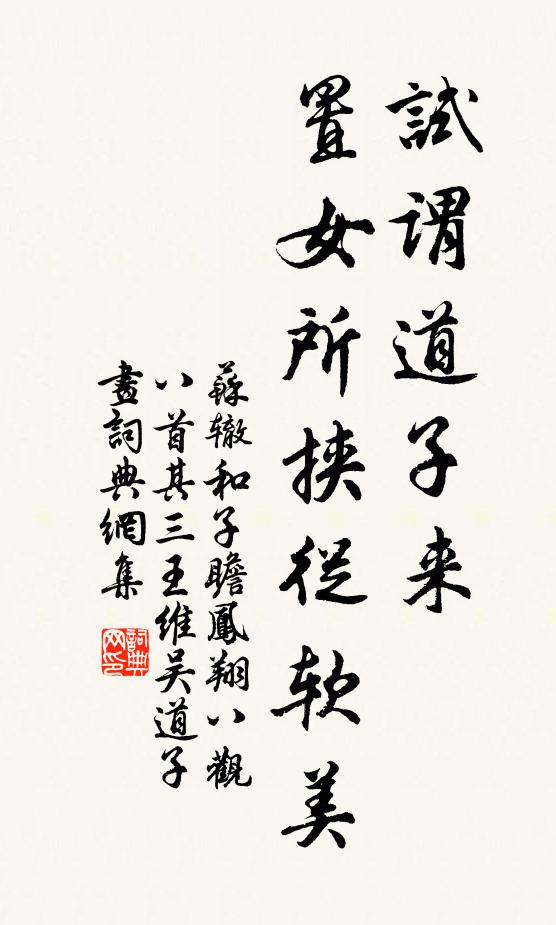 試謂道子来
置女所挟從软美
蘇辙和子瞻鳳翔八觀
八首其三王維吴道子
畫詞典網集
詞典网印